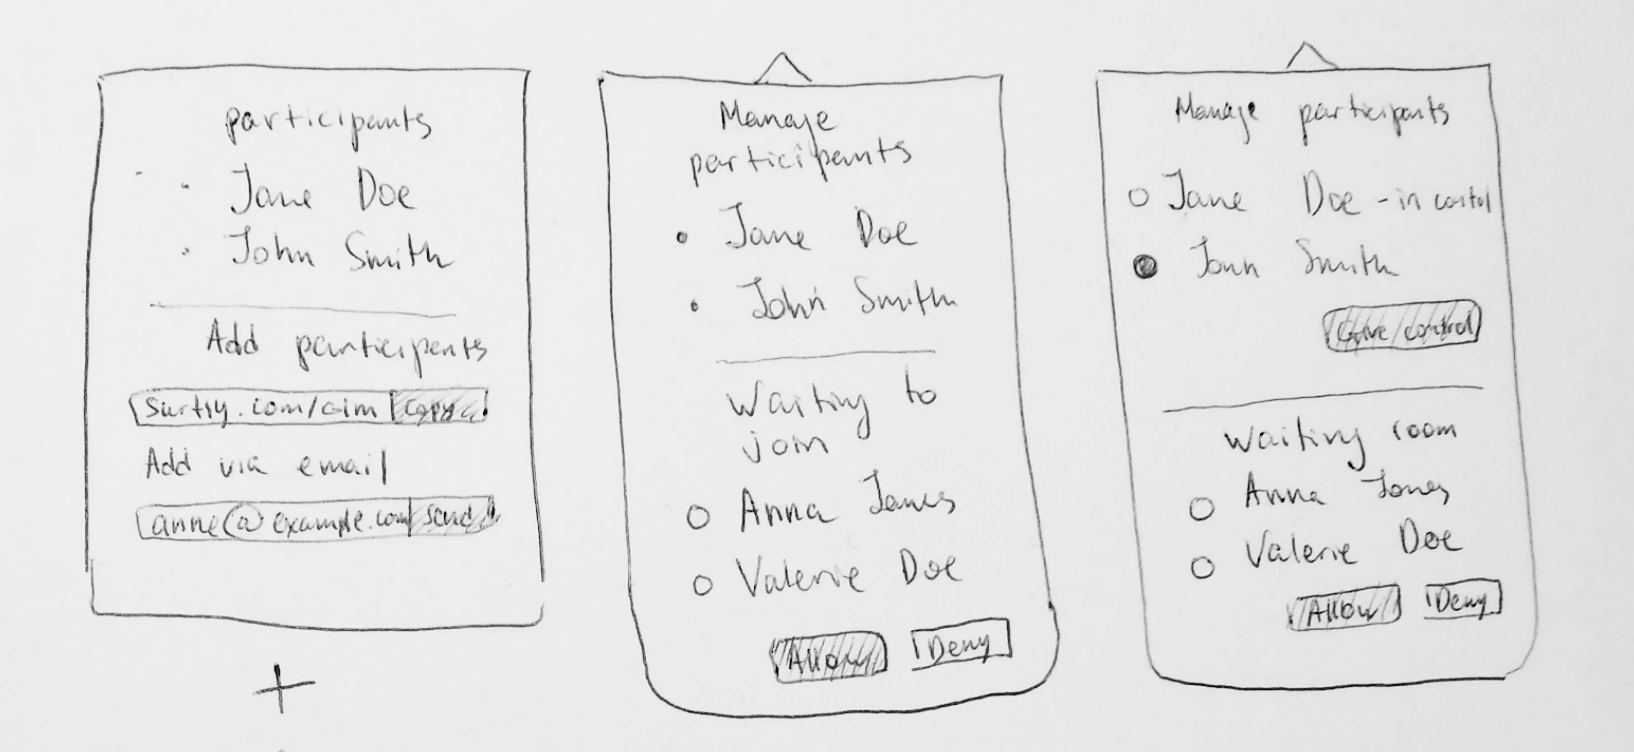 participants
Jane Doe
John Smith
Add participants
Copy
Add via email
anne@example.com Send
Manage
participants
Jane Doe
John Smith
Waiting to
join
Anna Jones
Valerie Doe
Allow Deny
Manage participants
Jane Doe - in control
John Smith
Give control
Waiting room
Anna Jones
Valerie Doe
Allow Deny